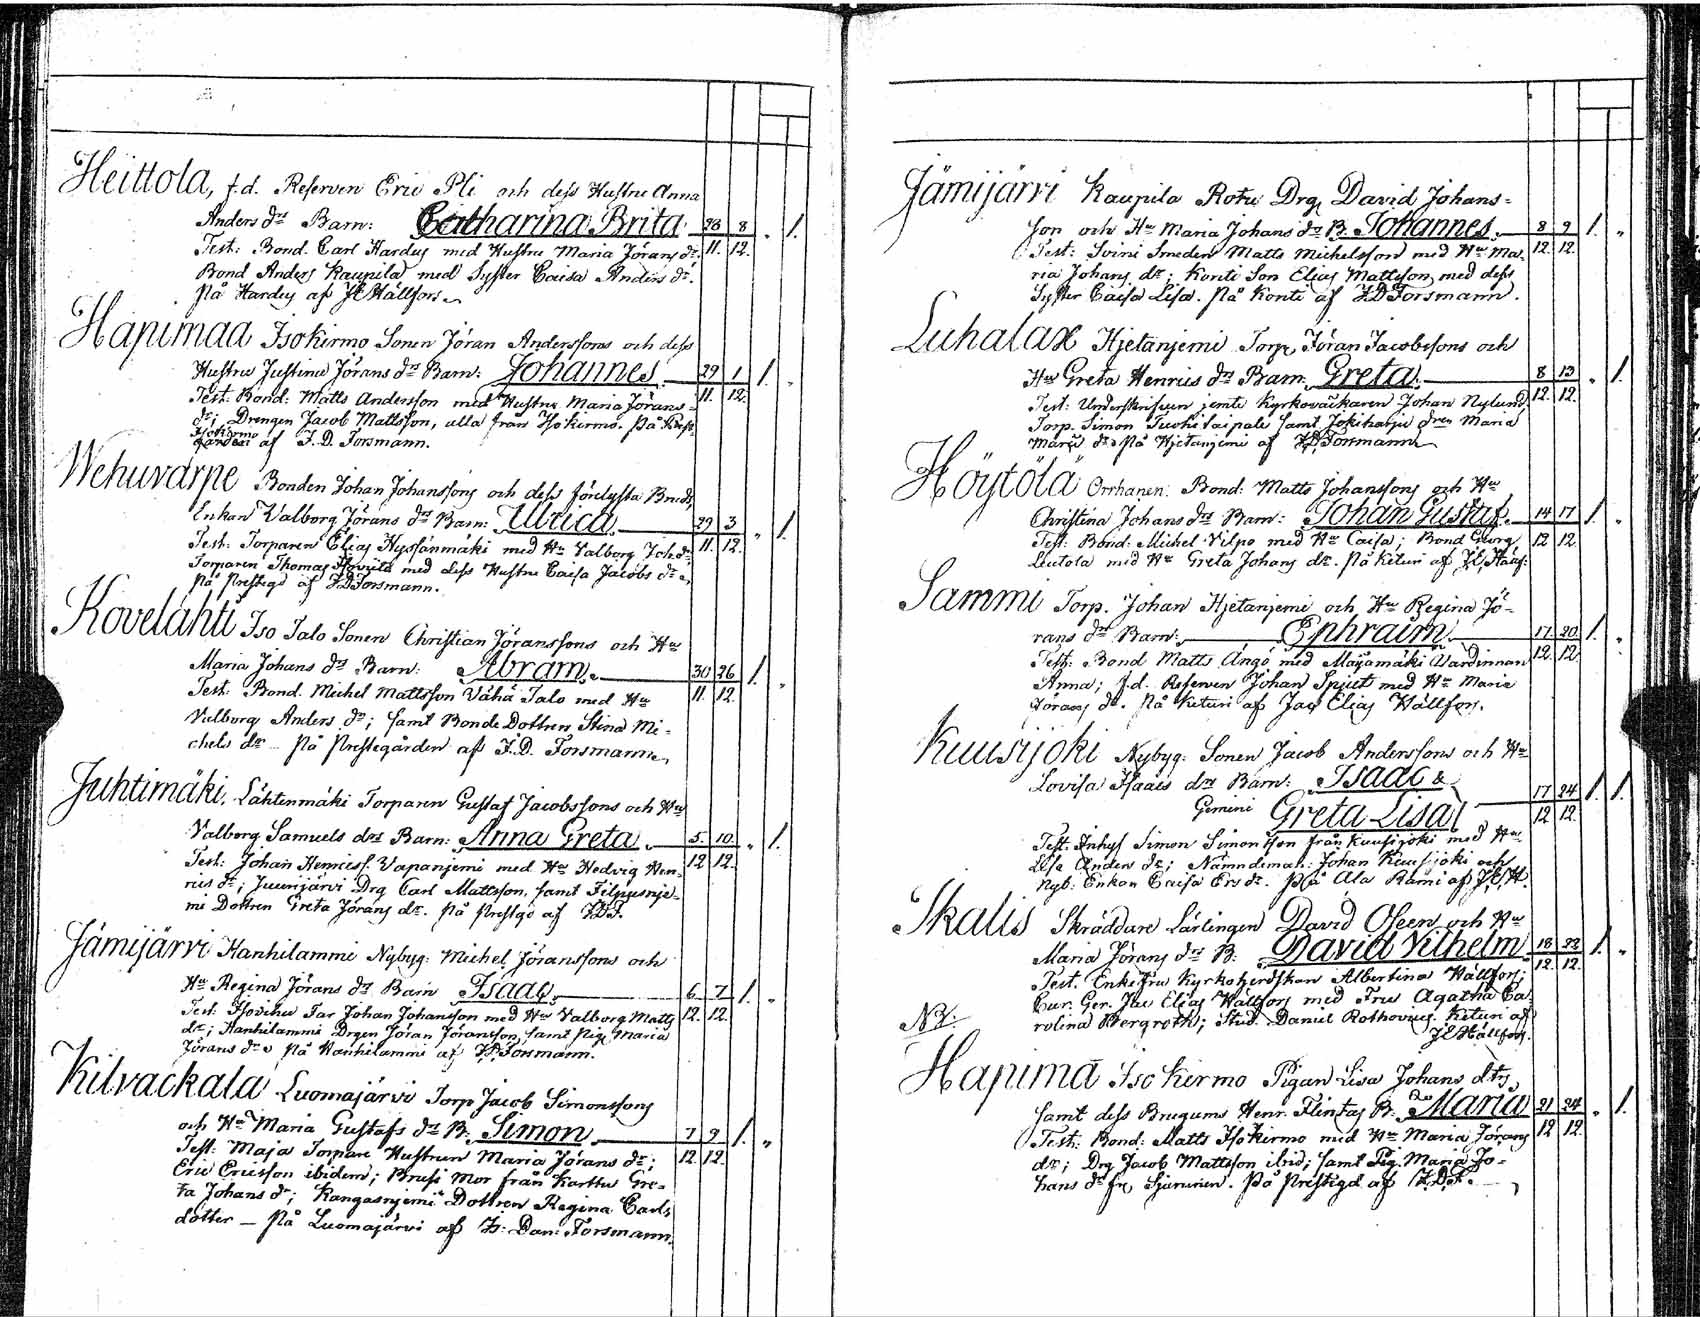 Heittola, f.d. Reserven Eric Pli och dess Hustru Anna
Anders dr Barn: Catharina Brita 28 8 1.
Test: Bond. Carl Hardus med Hustru Maria Jörans dr. 11. 12.
Bond Anders Kaupila med Syster Caisa Anders dr.
På Hardus af JE Hällfors
Hapimaa Isokirmo Sonen Jöran Anderssons och dess
Hustru Justina Jörans drs Barn: Johannes 29 1 1.
Test: Bond: Matts Andersson med Hustru Maria Jörans= 11. 12.
dr; Drengen Jacob Mattsson, alla från Isokirmo. På
Isokirmo af F. D. Forsmann.
Wehuvarpe Bonden Johan Johanssons och dess
Enkan Valborg Jörans drs Barn: Ulrica 29 3 1.
Test: Torparen Elias med Hu Valborg Joh: dr 11. 12.
Torparen Thomas med dess Hustru Caisa Jacobs dr
På Prestgd af F.D Forsmann.
Kovelahti Iso Talo Sonen Christian Jöranssons och Hu
Maria Johans drs Barn: Abram 30 26 1.
Test: Bond. Michel Mattsson Vähä Talo med Hu 11. 12.
Valborg Anders dr; samt Bonde Dottren Stina Mi=
chels dr På Prestegården af F.D. Forsmann
Juhtimäki, Lähtenmäki Torparen Gustaf Jacobssons och Hu
Valborg Samuels drs Barn: Anna Greta 5. 10. 1.
Test: Johan Henricss. Vapanjemi med Hu Hedvig Hen= 12 12.
rics dr; Juurijärvi Drg Carl Mattsson, samt Filpusnje=
mi Dottren Greta Jörans dr. På Prestgd af F.D.F.
Jämijärvi Hanhilammi Nybyg: Michel Jöranssons och
Hu Regina Jörans drs Barn Isaac 6 7 1.
Test: Far Johan Johansson med Hu Valborg Matts 12. 12.
dr; Hanhilammi Drgen Jöran Jöransson, samt Pig: Maria
Jörans dr På Hanhilammi af F.D. Forsmann.
Kilvackala Luomajärvi Torp Jacob Simonssons
och Hu Maria Gustafs drs B. Simon 7 9 1.
Test: Maja Torpare Hustrun Maria Jörans dr; 12. 12.
Eric Ericsson ibidem; Mor från Karttu Gre=
ta Johans dr; Kangasnjemi Dottren Regina Carls
dotter — På Luomajärvi af F: Dan: Forsmann.
Jämijärvi Kaupila Rotu Drg David Johans=
son och Hu Maria Johans dr B. Johannes. 8 9 1.
Test: Soini Smeden Matts Michelsson med Hu Ma= 12 12.
ria Johans dr; Konti Son Elias Mattsson, med dess
Syster Caisa Lisa. På Konti af F.D Forsmann.
Luhalax Hjetanjemi Torp. Jöran Jacobssons och
Hu Greta Henrics drs Barn: Greta 8 13 1.
Test: jemte Kyrkoväckaren Johan Nylund 12 12.
Torp. Simon samt dren Maria
dr. På Hjetanjemi af F.D. Forsmann
Höytölä Orrhanen. Bond: Matts Johanssons och Hu
Christina Johans drs Barn: Johan Gustaf. 14 17 1.
Test: Bond: Michel Vilpo med Hu Caisa; Bond Georg 12 12
Leutola med Hu Greta Johans dr. På Keturi af J.E. Hällf:
Sammi Torp. Johan Hjetanjemi och Hu Regina Jö=
rans drs Barn: Ephraim 17 20. 1.
Test: Bond Matts Ångo med Majamäki Värdinnan 12. 12.
Anna; f.d. Reserven Johan Spjut med Hu Maria
Jörans dr. På Keturi af Jac Elias Hällfors.
Kuusijoki Nybyg: Sonen Jacob Anderssons och Hu
Lovisa Isaacs drs Barn: Isaac &
Gemini Greta Lisa 17 24 1. 1.
Test: Inhys Simon Simonsson från Kuusijoki med Hu 12 12.
Lisa Anders dr; Nämndeman: Johan Kuusijoki och
Nyb: Enkan Caisa Ers dr. På Ala Rämi af J.E.H.
Skalis Skräddare Lärlingen David Oseen och Hu
Maria Jörans drs B. David Vilhelm 18 23 1.
Test. Enkefru Kyrkoherdskan Albertina Hällfors; 12. 12.
Cur. Ger. Jac Elias Hällfors med Fru Agatha Ca=
NB: rolina Bergroth; Stud. Daniel Rothovius. Keturi af
JE Hällfors.
Hapima Iso Kirmo Pigan Lisa Johans dtrs
samt dess Brugums Henr. Flintas B. Maria 21 24 1.
Test: Bond: Matts Isokirmo med Hu Maria Jörans 12 12.
dr; Drg Jacob Mattsson ibid; samt Pig. Maria Jo=
hans dr fr. Sjurinen. På Prestgd af F.D.F.